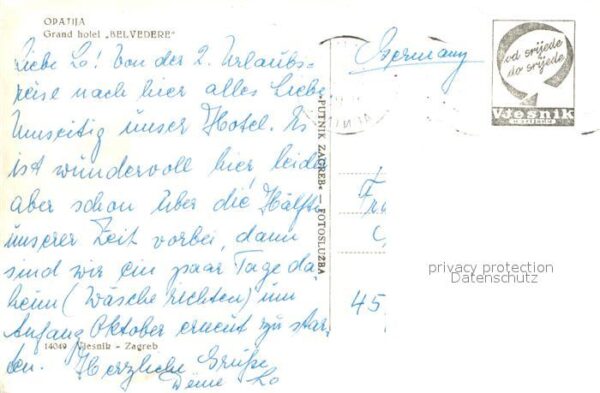 OPATIJA
Grand hotel „BELVEDERE"
Liebe Lo! Von der 2. Urlaubs-
reise nach hier alles Liebe
Umseitig unser Hotel. Es
ist wundervoll hier, leider
aber schon über die Hälfte
unserer Zeit vorbei, dann
sind wir ein paar Tage da-
heim (Wäsche richten) um
Anfang Oktober erneut zu star-
ten. Herzliche Grüße
Deine Lo
14049 Vjesnik - Zagreb
»PUTNIK ZAGREB« FOTOSLUŽBA
Germany
od srijede
do srijede
Vjesnik
u srijedu
45
privacy protection
Datenschutz